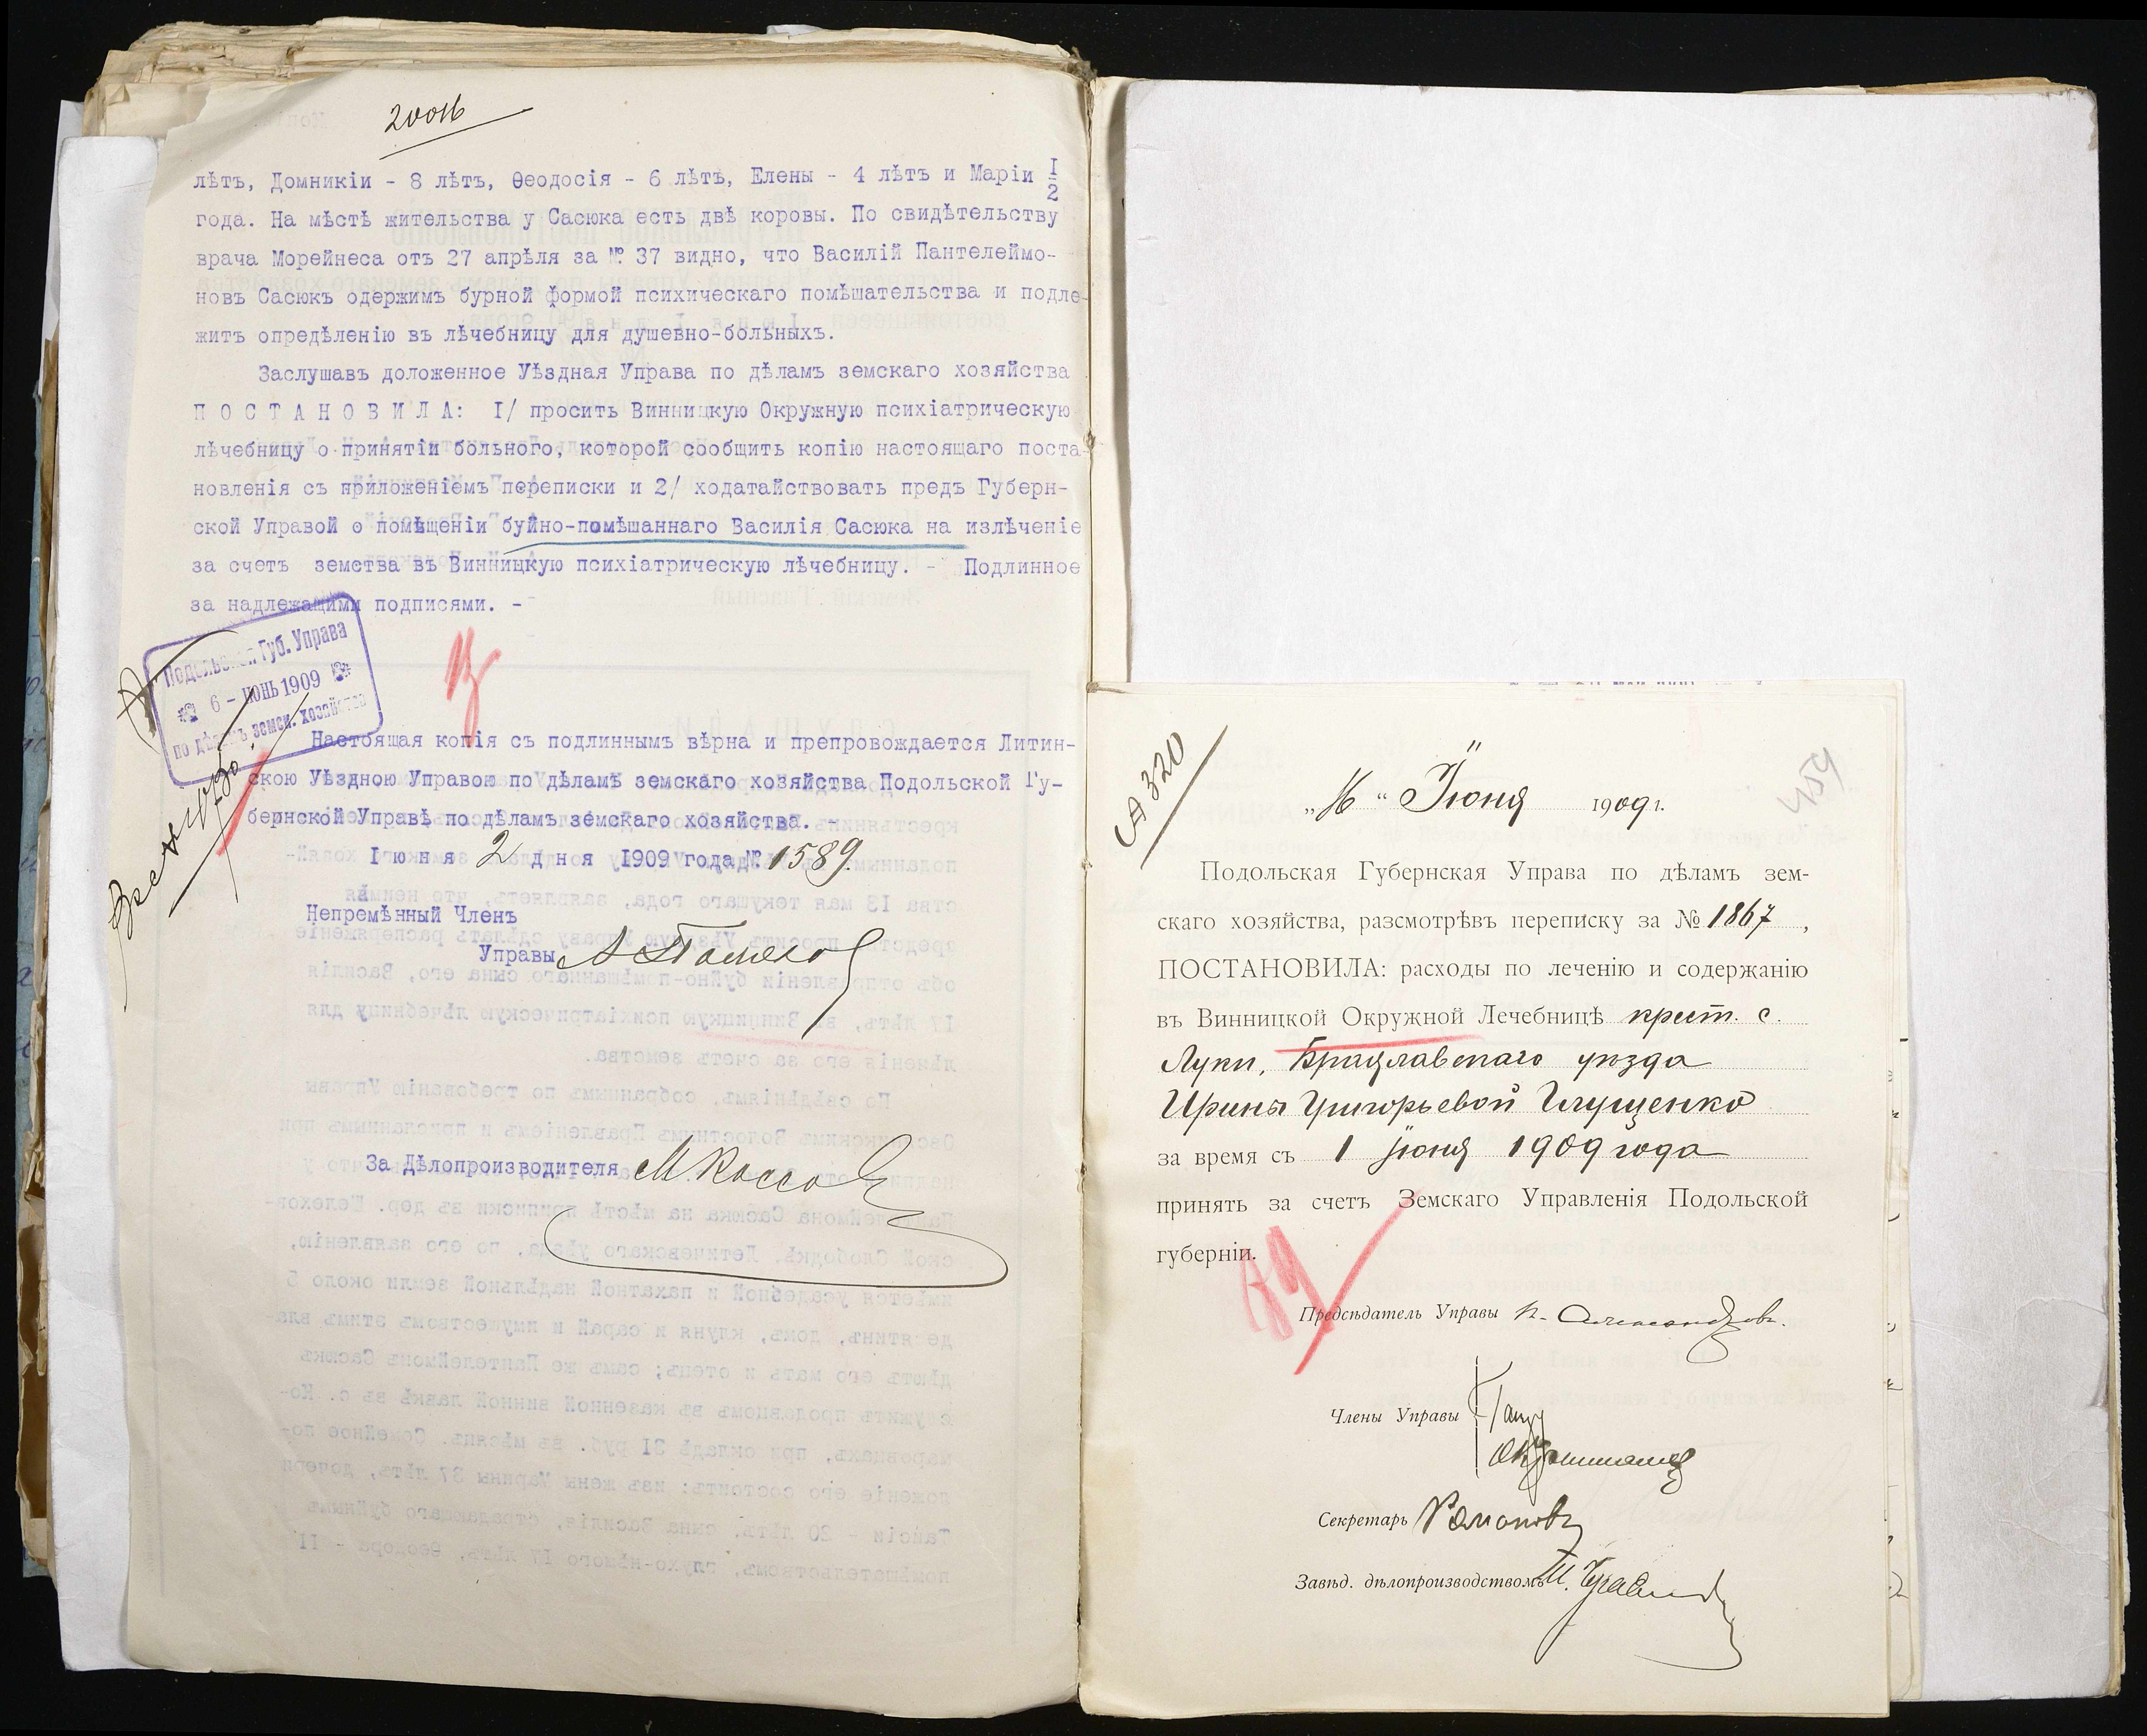 20016
лѣтъ, Домникіи - 8 лѣтъ, Ѳеодосія - 6 лѣтъ, Елены - 4 лѣтъ и Маріи I/2
года. На мѣстѣ жительства у Сасюка есть двѣ коровы. По свидѣтельству
врача Морейнеса отъ 27 апрѣля за № 37 видно, что Василій Пантелеймо-
новъ Сасюкъ одержимъ бурной формой психическаго помѣшательства и подле-
житъ опредѣленію въ лѣчебницу для душевно-больныхъ.
Заслушавъ доложенное Уѣздная Управа по дѣламъ земскаго хозяйства
П О С Т А Н О В И Л А: I/ просить Винницкую Окружную психіатрическую
лѣчебницу о принятіи больного, которой сообщить копію настоящаго поста-
новленія съ приложеніемъ переписки и 2/ ходатайствовать предъ Губерн-
ской Управой о помѣщеніи буйно-помѣшаннаго Василія Сасюка на излѣченіе
за счетъ земства въ Винницкую психіатрическую лѣчебницу. - Подлинное
за надлежащими подписями. -
Подольская Губ. Управа
6 - ІЮНЬ 1909
по дѣламъ земск. хозяйства
Настоящая копія съ подлиннымъ вѣрна и препровождается Литин-
скою Уѣздною Управою по дѣламъ земскаго хозяйства Подольской Гу-
бернской Управѣ по дѣламъ земскаго хозяйства. -
Iюня 2 дня 1909 года № 1589.
Непремѣнный Членъ
Управы
За Дѣлопроизводителя
А 320
459
"16" Іюня 1909 г.
Подольская Губернская Управа по дѣламъ зем-
скаго хозяйства, разсмотрѣвъ переписку за № 1867,
ПОСТАНОВИЛА: расходы по леченію и содержанію
въ Винницкой Окружной Лечебницѣ крест. с.
Луки, Брацлавскаго уѣзда
Ирины Григорьевой Глущенко
за время съ 1 Іюня 1909 года
принять за счетъ Земскаго Управленія Подольской
губерніи.
Предсѣдатель Управы К. Александровъ.
Члены Управы
Секретарь Романовъ
Завѣд. дѣлопроизводствомъ